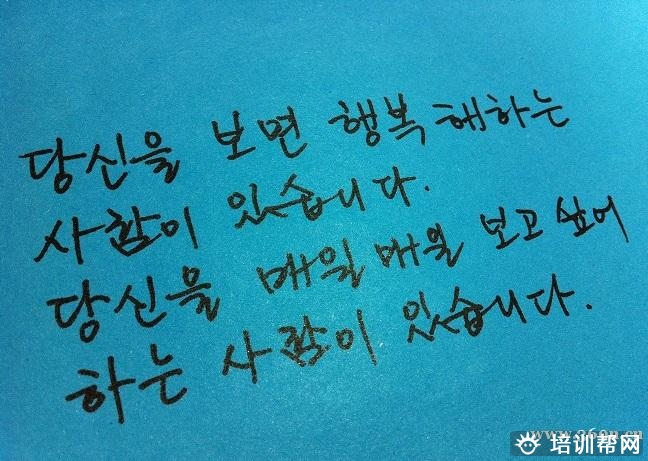 당신을 보면 행복해하는
사람이 있습니다.
당신을 매일매일 보고 싶어
하는 사람이 있습니다.
培训帮网